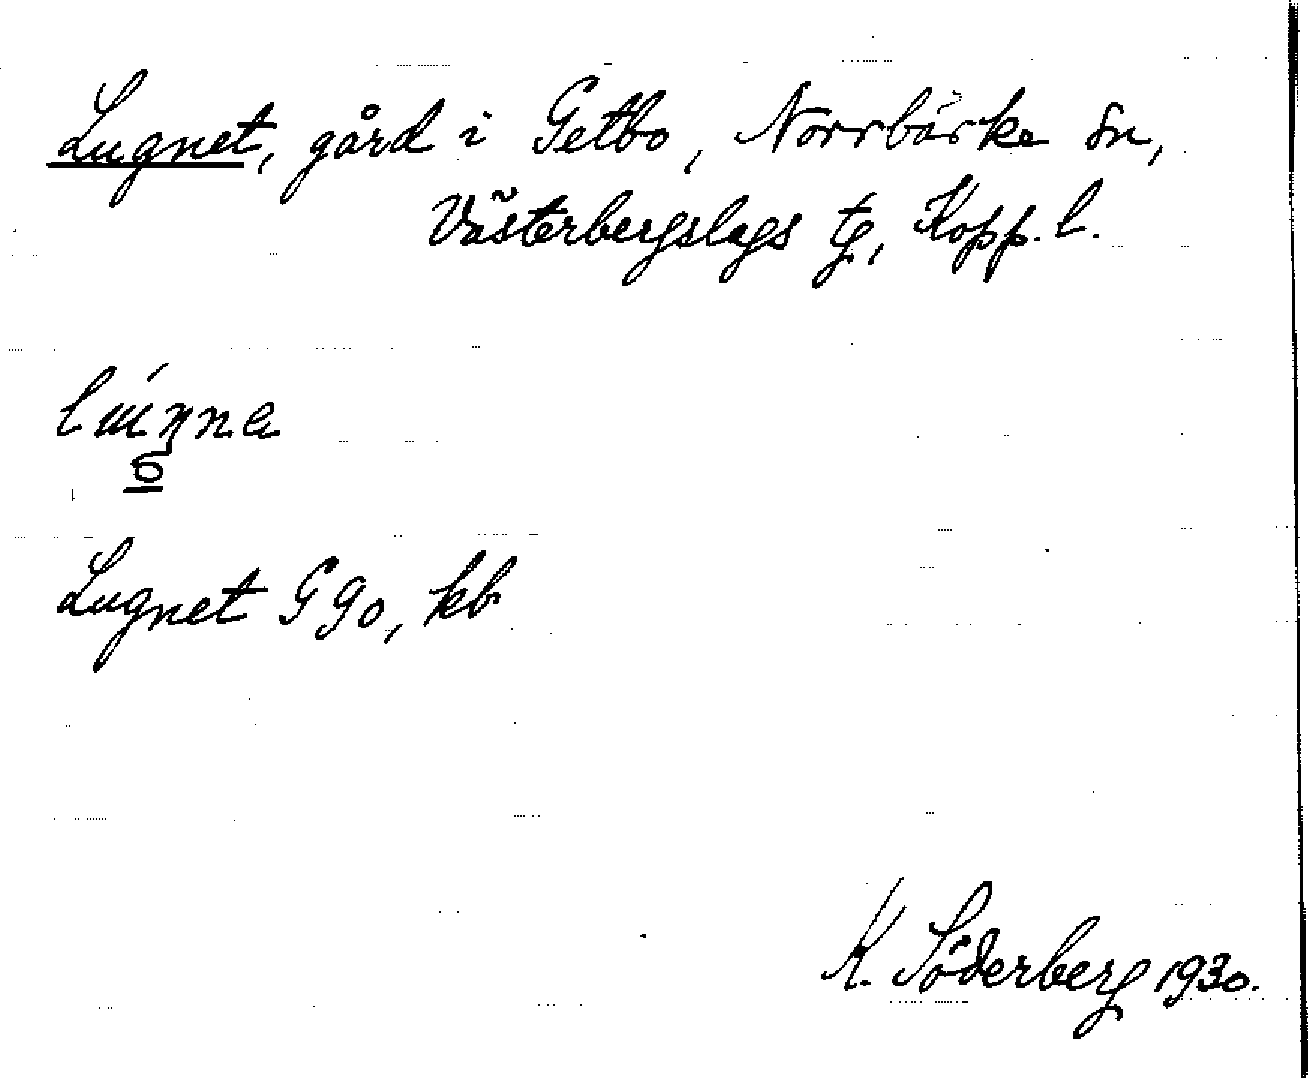 Lugnet, gård i Getbo, Norrbärke sn,
Västerbergslags tg, Kopp. l.
Lugnet G 90, kb
K. Söderberg 1930.